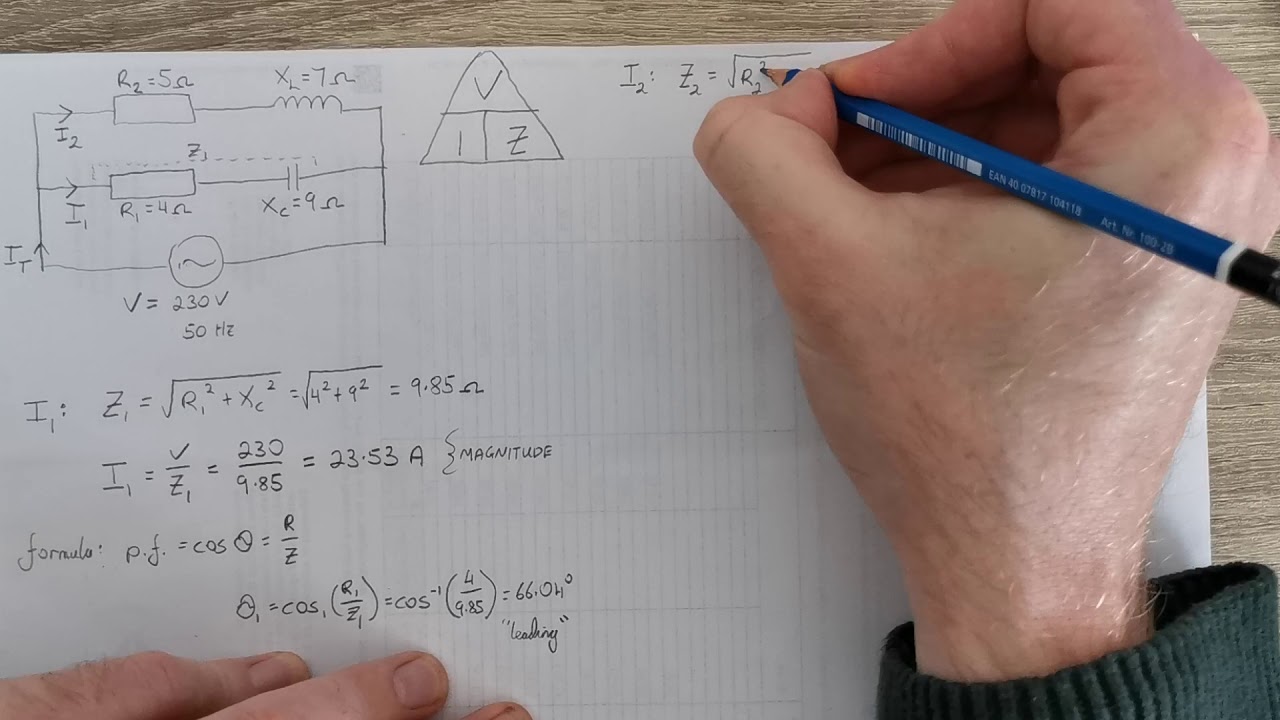 R₂=5Ω X_L=7Ω
I₂
Z₁
I₁ R₁=4Ω X_C=9Ω
I_T
V = 230V
50 Hz
V
I Z
I₂: Z₂ = √R₂²
EAN 40 07817 104118 Art. Nr. 100-2B
I₁: Z₁ = √(R₁² + X_C²) = √(4²+9²) = 9.85Ω
I₁ = V/Z₁ = 230/9.85 = 23.53 A } MAGNITUDE
formula: p.f. = cos Θ = R/Z
Θ₁ = cos₁(R₁/Z₁) = cos⁻¹(4/9.85) = 66.04°
"leading"